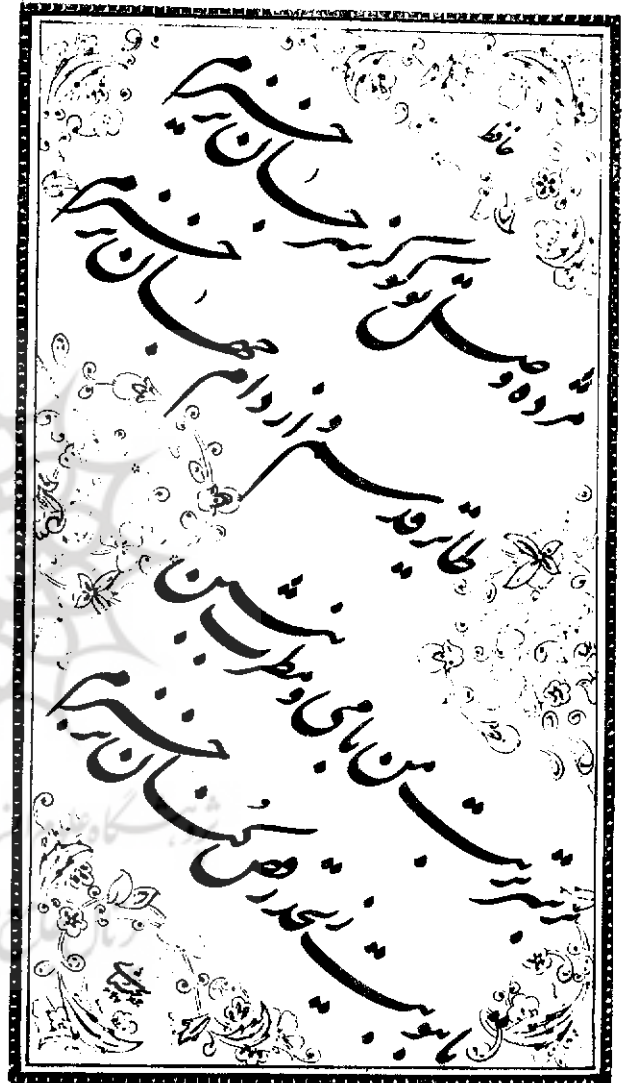 حافظ
مژده وصل تو کو کز سر جان برخیزم
طایر قدسم و از دام جهان برخیزم
بر سر تربت من با می و مطرب بنشین
تا ببویت ز لحد رقص کنان برخیزم